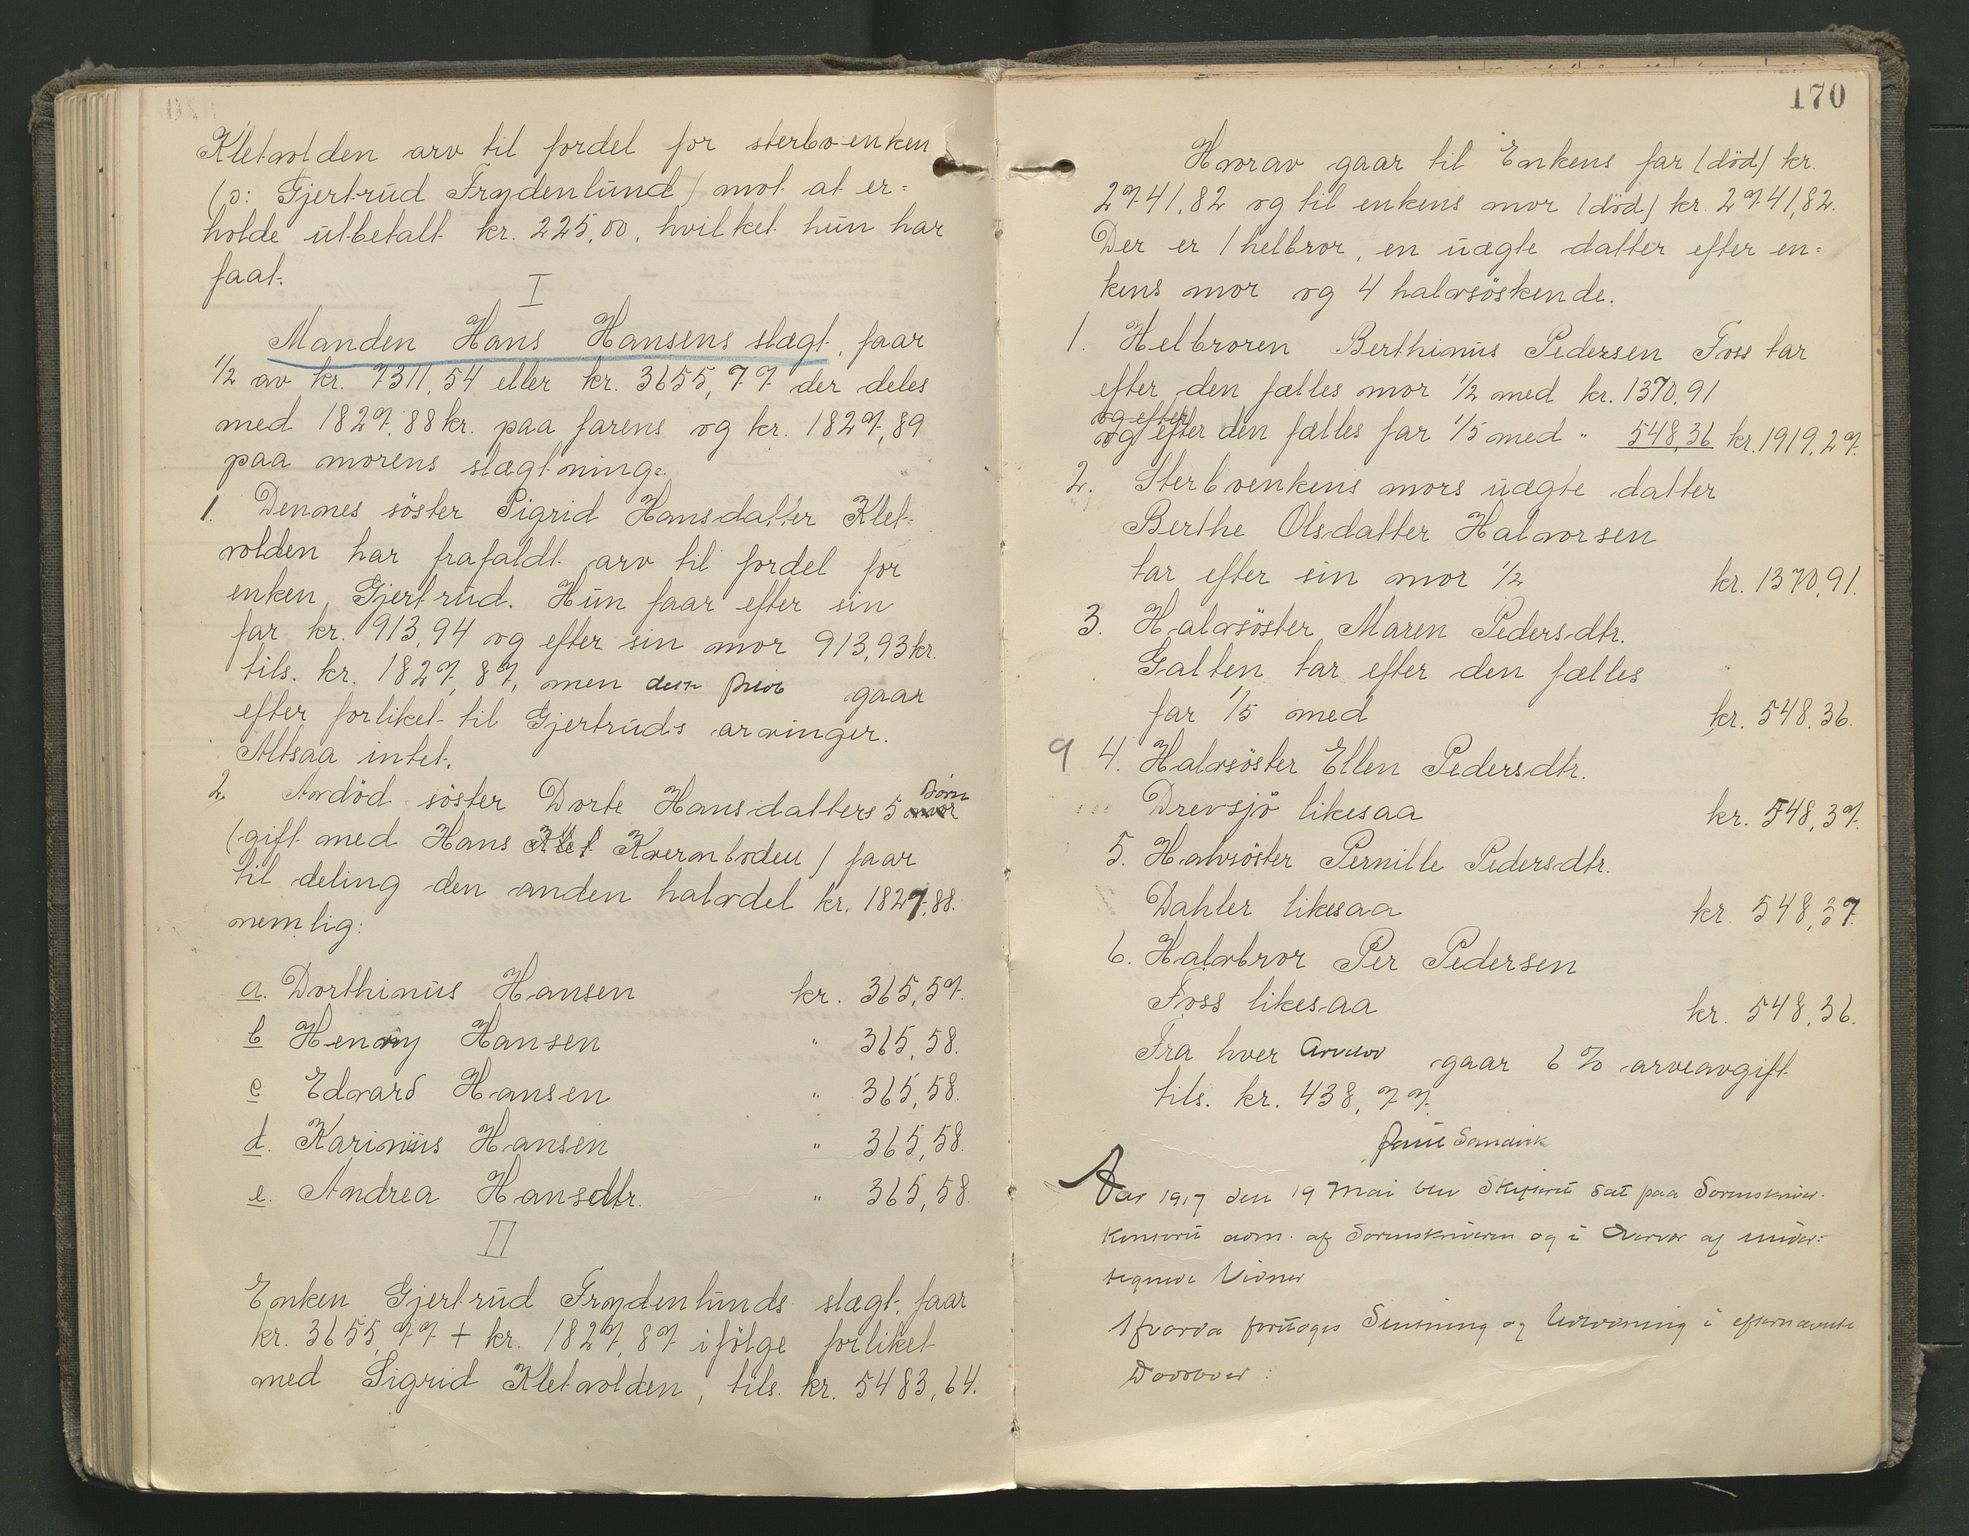 Kletvolden arv til fordel for sterboenken
(ɔ: Gjertrud Frydenlund) mot at er=
holde utbetalt kr. 225,00, hvilket hun har
faat.
I
Manden Hans Hansens slægt, faar
1/2 av kr. 7311,54 eller kr. 3655,77 der deles
med 1827,88 kr. paa farens og kr. 1827,89
paa morens slægtninge.
1. Dennes söster Sigrid Hansdatter Klet-
volden har frafaldt arv til fordel for
enken Gjertrud. Hun faar efter sin
far kr. 913,94 og efter sin mor 913,93 kr.
tils. kr. 1827,87, men gaar
efter forliket til Gjertruds arvinger.
Altsaa intet.
2. Avdöd söster Dorte Hansdatters 5 Börn
(gift med Hans Kvernboden) faar
til deling den anden halvdel kr. 1827,88.
nemlig:
a. Dorthinus Hansen kr. 365,57.
b Henry Hansen " 365,58.
c Edvard Hansen " 365,58.
d. Karinius Hansen " 365,58.
e. Andrea Hansdtr. " 365,58.
II
Enken Gjertrud Frydenlunds slægt, faar
kr. 3655,77 + kr. 1827,87 ifölge forliket
med Sigrid Kletvolden, tils. kr. 5483,64.
170
Hvorav gaar til Enkens far (död) kr.
2741,82 og til enkens mor (död) kr. 2741,82.
Der er 1 helbror, en uægte datter efter en=
kens mor og 4 halvsöskende.
1. Helbroren Berthinus Pedersen Foss tar
efter den fælles mor 1/2 med kr. 1370,91
og efter
og efter den fælles far 1/5 med " 548,36 kr. 1919,27.
2. Sterboenkens mors uægte datter
Berthe Olsdatter Halvorsen
tar efter sin mor 1/2 kr. 1370,91.
3. Halvsöster Maren Pedersdtr.
Galten tar efter den fælles
far 1/5 med kr. 548,36.
9 4. Halvsöster Ellen Pedersdtr.
Drevsjö likesaa kr. 548,37.
5. Halvsöster Pernille Pedersdtr.
Dahler likesaa kr. 548,37.
6. Halvbror Per Pedersen
Foss likesaa kr. 548,36.
Fra hver Arvelod gaar 6 % arveavgift
tils. kr. 438,77.
Paul Sandvik
Aar 1917 den 19 Mai blev Skifteret sat paa Sorenskriver-
kontoret adm. af Sorenskriveren og i Overvær af under=
tegnede Vidner
Hvorda foretoges Slutning og Udlodning i efternævnte
Dödsboer: